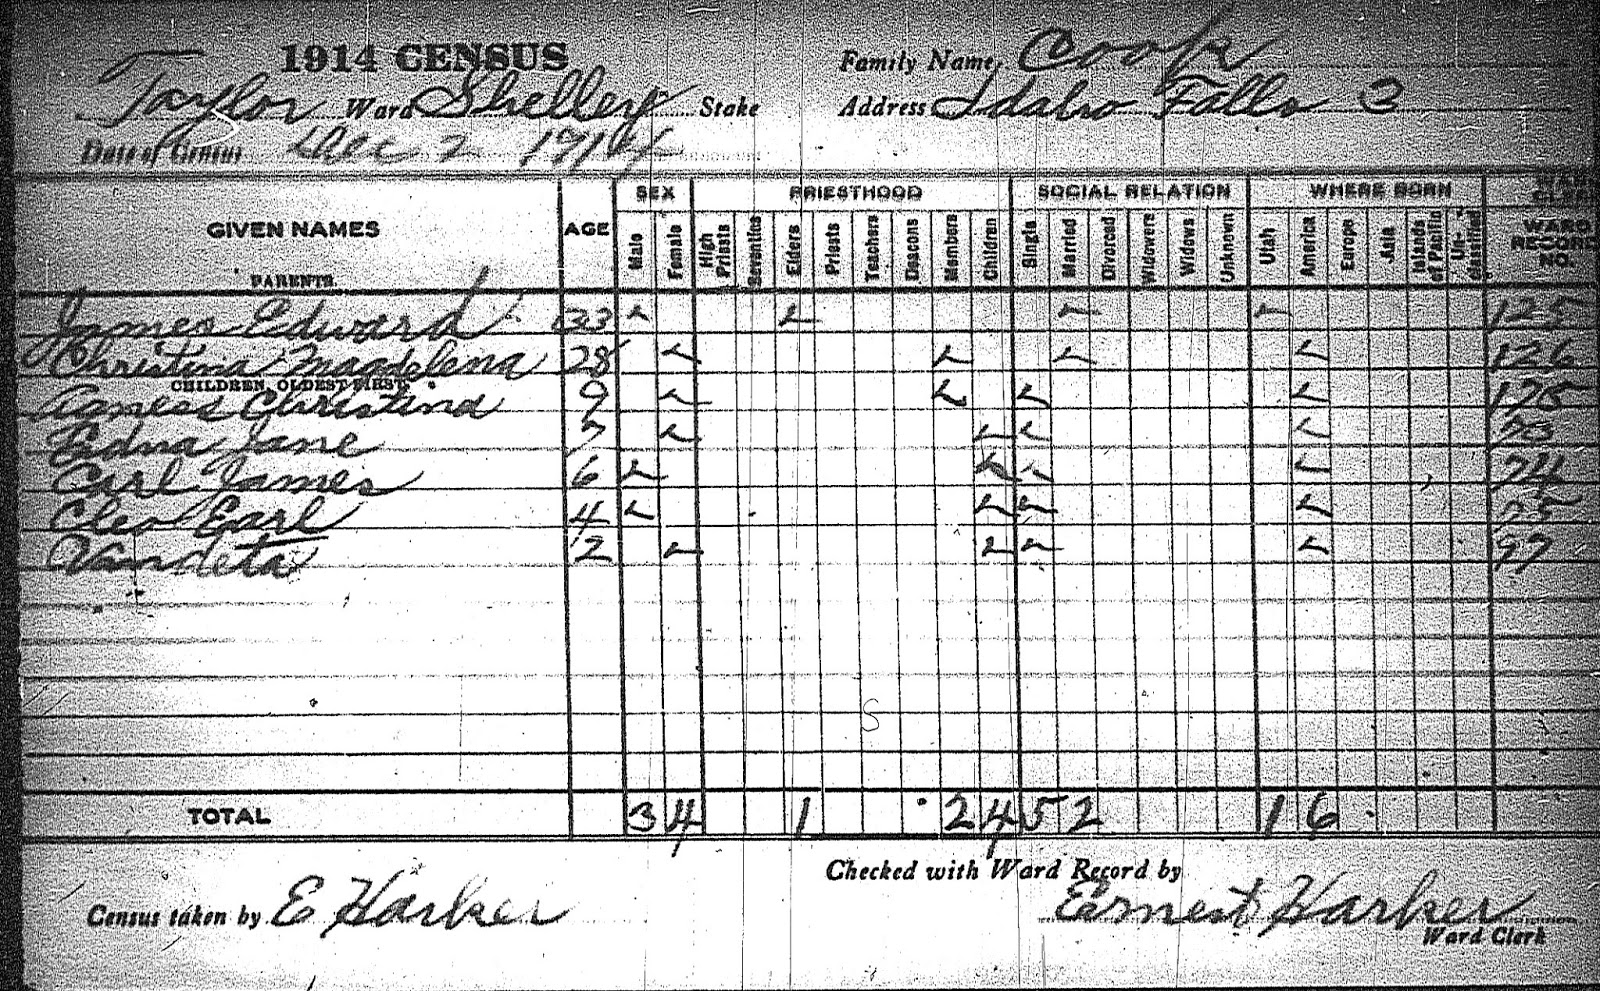 1914 CENSUS
Family Name, Cook
Taylor Ward Shelley Stake
Address Idaho Falls 3
Date of Census Dec 2 1914
GIVEN NAMES AGE SEX PRIESTHOOD SOCIAL RELATION WHERE BORN WARD RECORD NO.
Male Female High Priests Seventies Elders Priests Teachers Deacons Members Children Single Married Divorced Widowers Widows Unknown Utah America Europe Asia Islands of Pacific Un-classified
PARENTS.
James Edward 33 125
Christina Magdelena 28 126
CHILDREN, OLDEST FIRST.
Agness Christina 9 175
Edna Jane 7 73
Carl James 6 74
Cleo Earl 4 75
Vandeta 2 97
S
TOTAL 3 4 1 2 4 5 2 1 6
Checked with Ward Record by
Census taken by E Harker
Ernest Harker
Ward Clerk